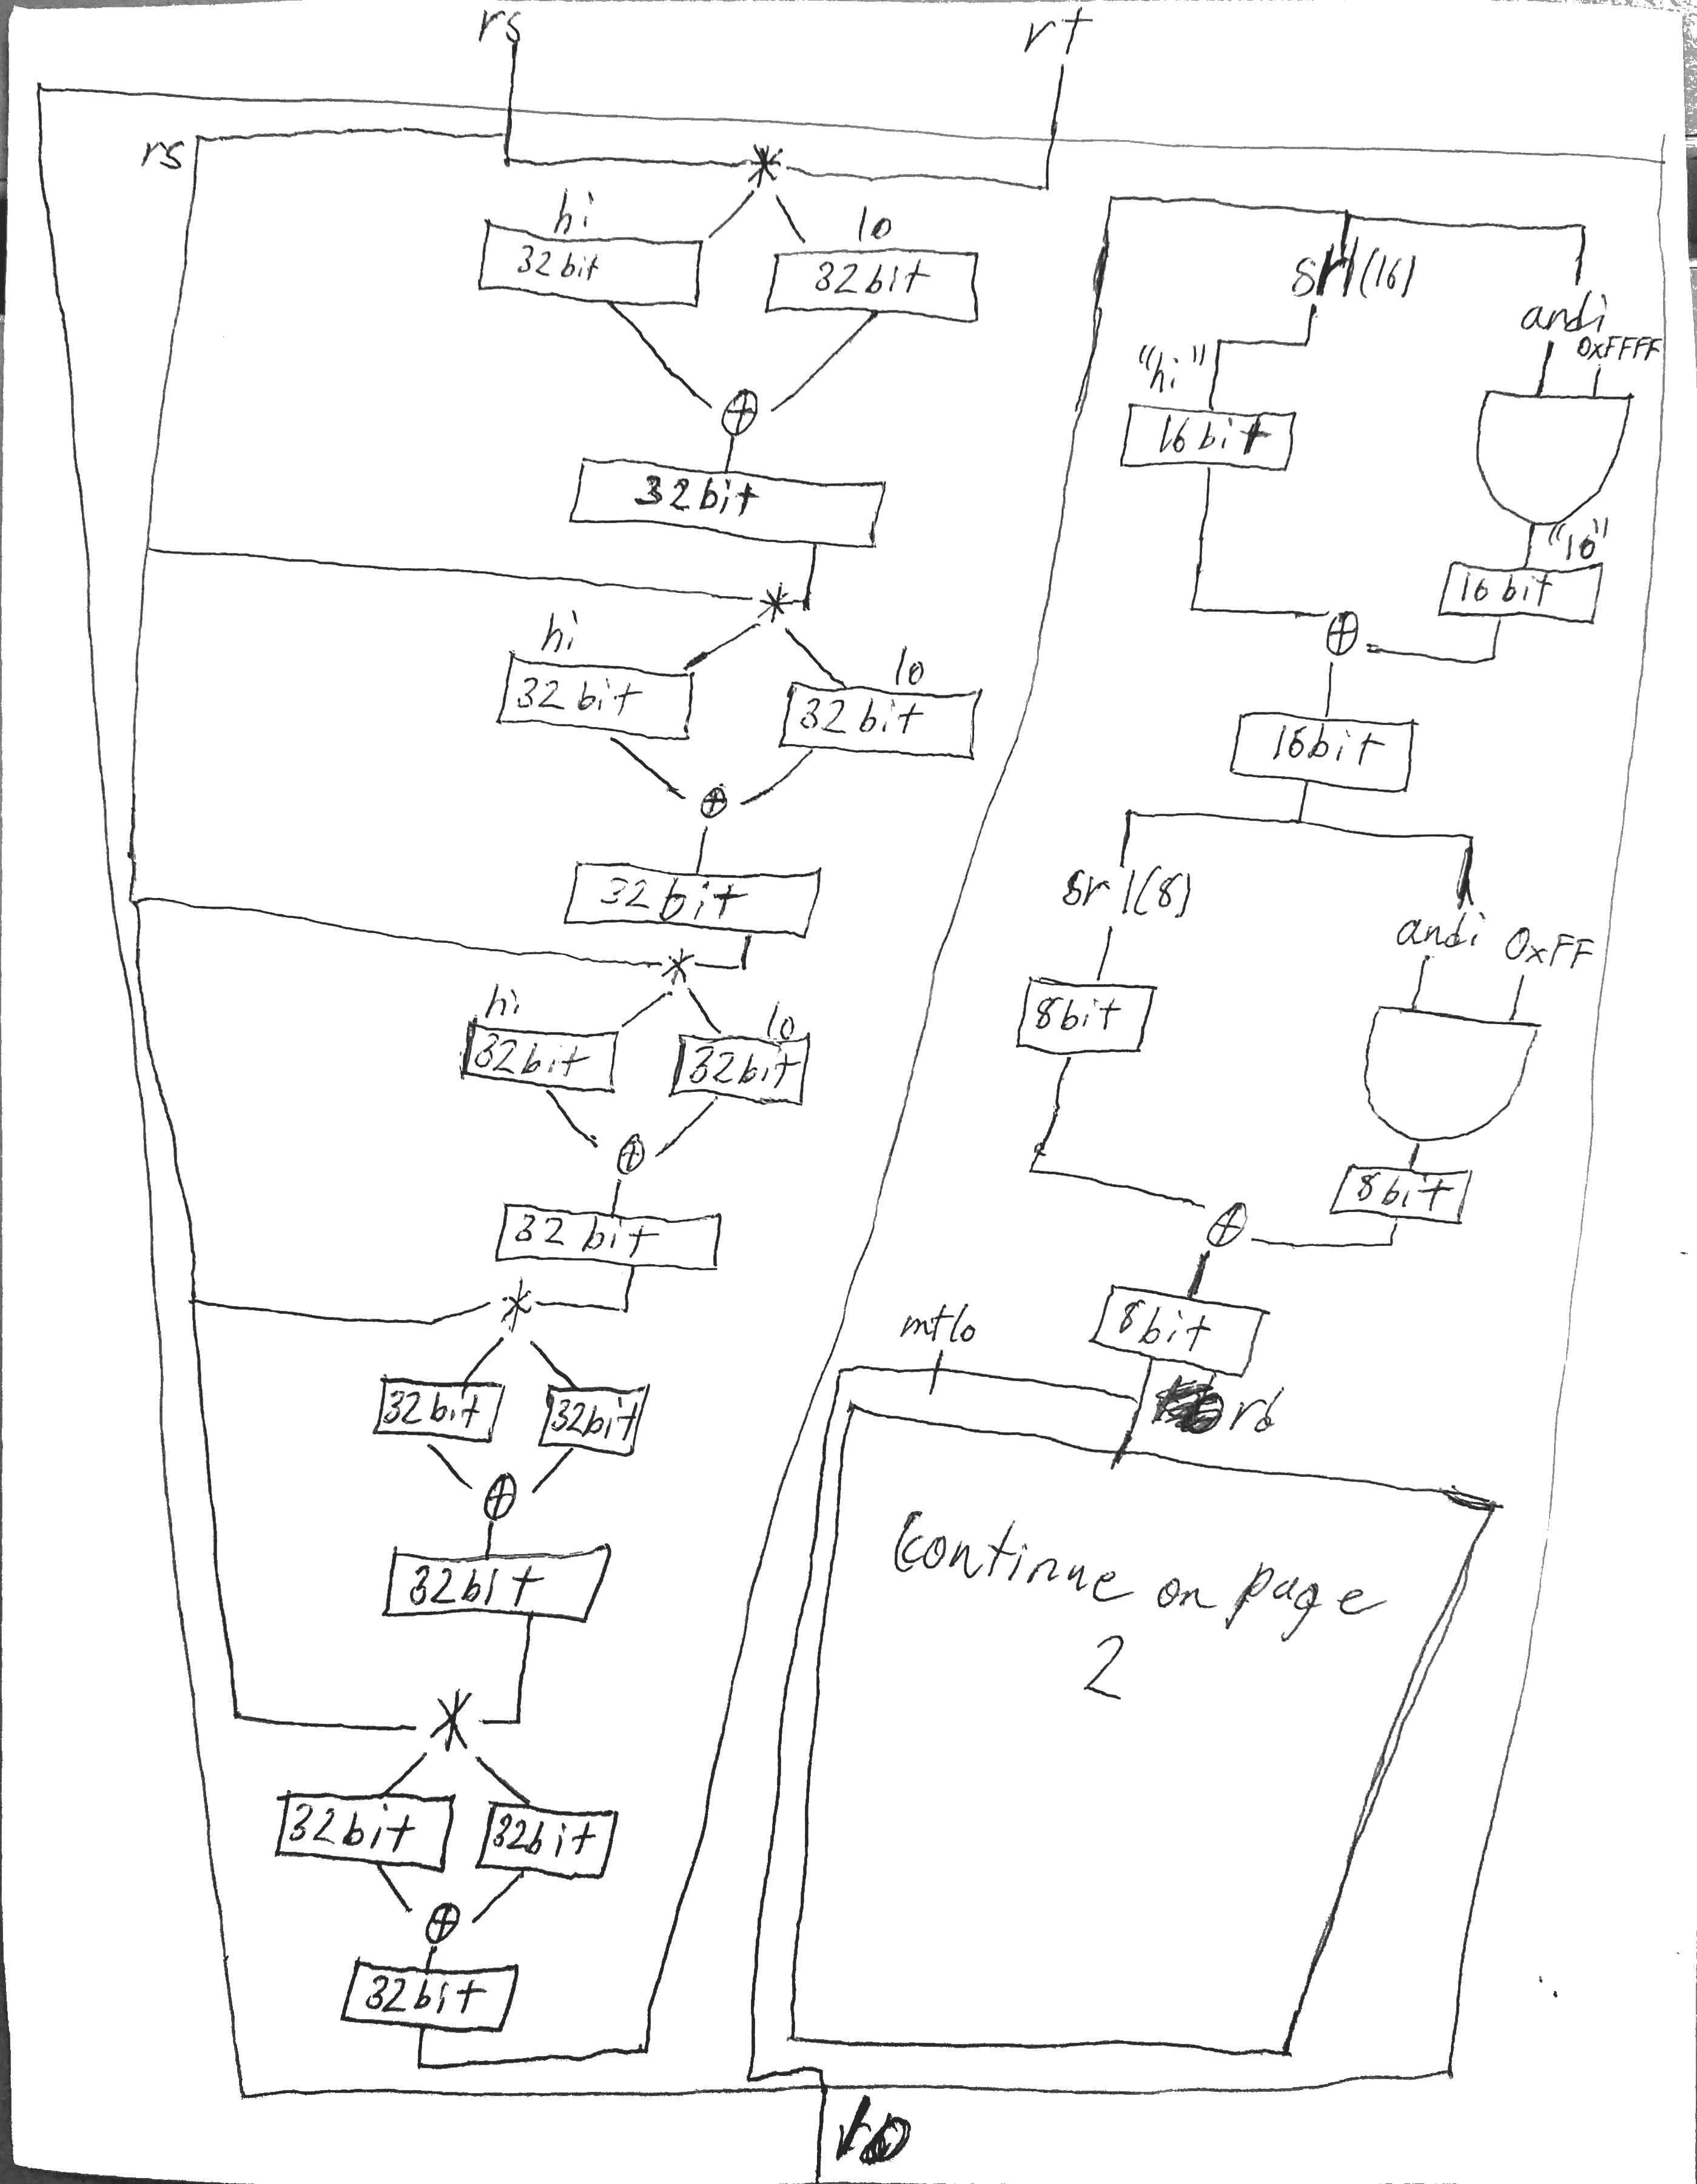 rs
rt
rs
*
hi
lo
32bit
32bit
⊕
32bit
*
hi
lo
32bit
32bit
⊕
32bit
*
hi
lo
32bit
32bit
⊕
32bit
*
32bit
32bit
⊕
32bit
*
32bit
32bit
⊕
32bit
srl(16)
andi
0xFFFF
"hi"
16bit
"lo"
16bit
⊕
16bit
srl(8)
andi 0xFF
8bit
8bit
⊕
8bit
mtlo
rd
Continue on page
2